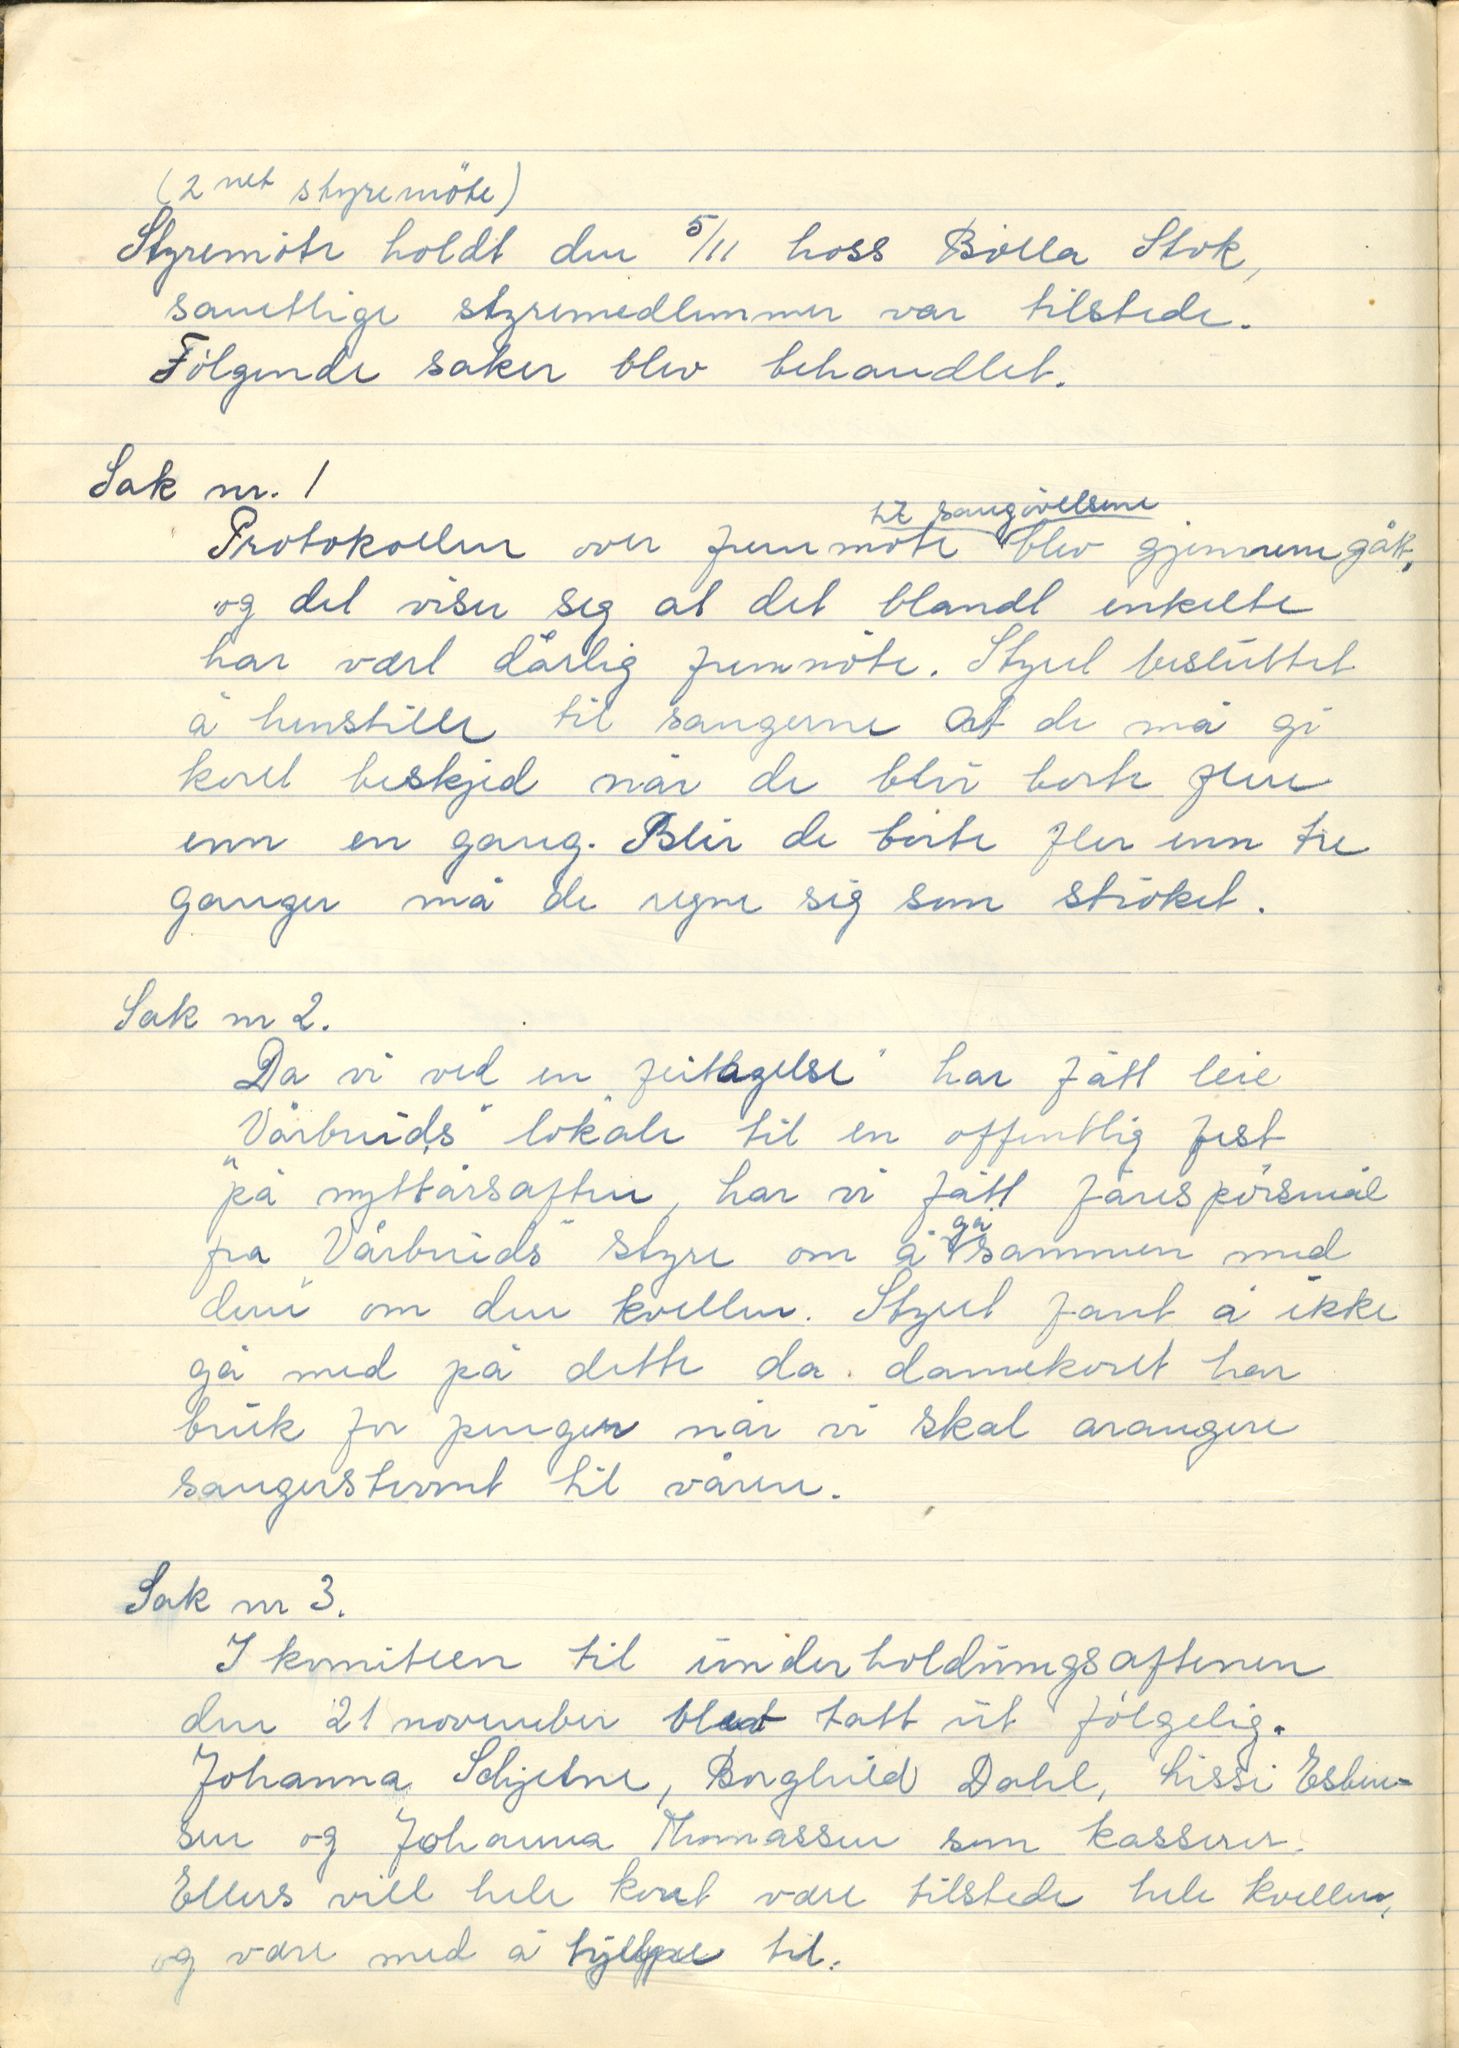 (2 net styremöte)
Styremöte holdt den 5/11 hoss Bolla Stok,
samtlige styremedlemmer var tilstede.
Fölgende saker blev behandlet.
Sak nr. 1
til sangövelsene
Protokollen over fremmöte blev gjennemgåt,
og det viser seg at det blandt enkelte
har vært dårlig fremmöte. Styret besluttet
å henstille til sangerne at de må gi
koret beskjed når de blir borte flere
enn en gang. Blir de borte fler enn tre
ganger må de regne sig som ströket.
Sak nr 2.
Da vi ved en feitagelse har fått leie
"Vårbuds" lokale til en offentlig fest
på nyttårsaften, har vi fått forespörsmål
fra "Vårbuds" styre om å gå sammen med
dem om den kvellen. Styret fant å ikke
gå med på dette da damekoret har
bruk for penger når vi skal arangere
sangerstevnt til våren.
Sak nr 3.
I komiteen til underholdningsaftenen
den 21 november blev tatt ut fölgelig.
Johanna Schjetne, Borghild Dahl, Lissi Esben-
sen og Johanna Thomassen som kasserer.
Ellers vill hele koret være tilstede hele kvellen,
og være med å hjelpe til.